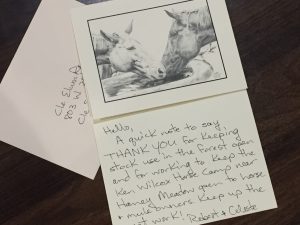 Cle Elum
803 W
Cle
Hello,
A quick note to say
THANK YOU for keeping
stock use in the forest open
and for working to keep the
Ken Wilcox Horse Camp near
Haney Meadow open to horse
& mule owners. Keep up the
work!
Robert & Celeste